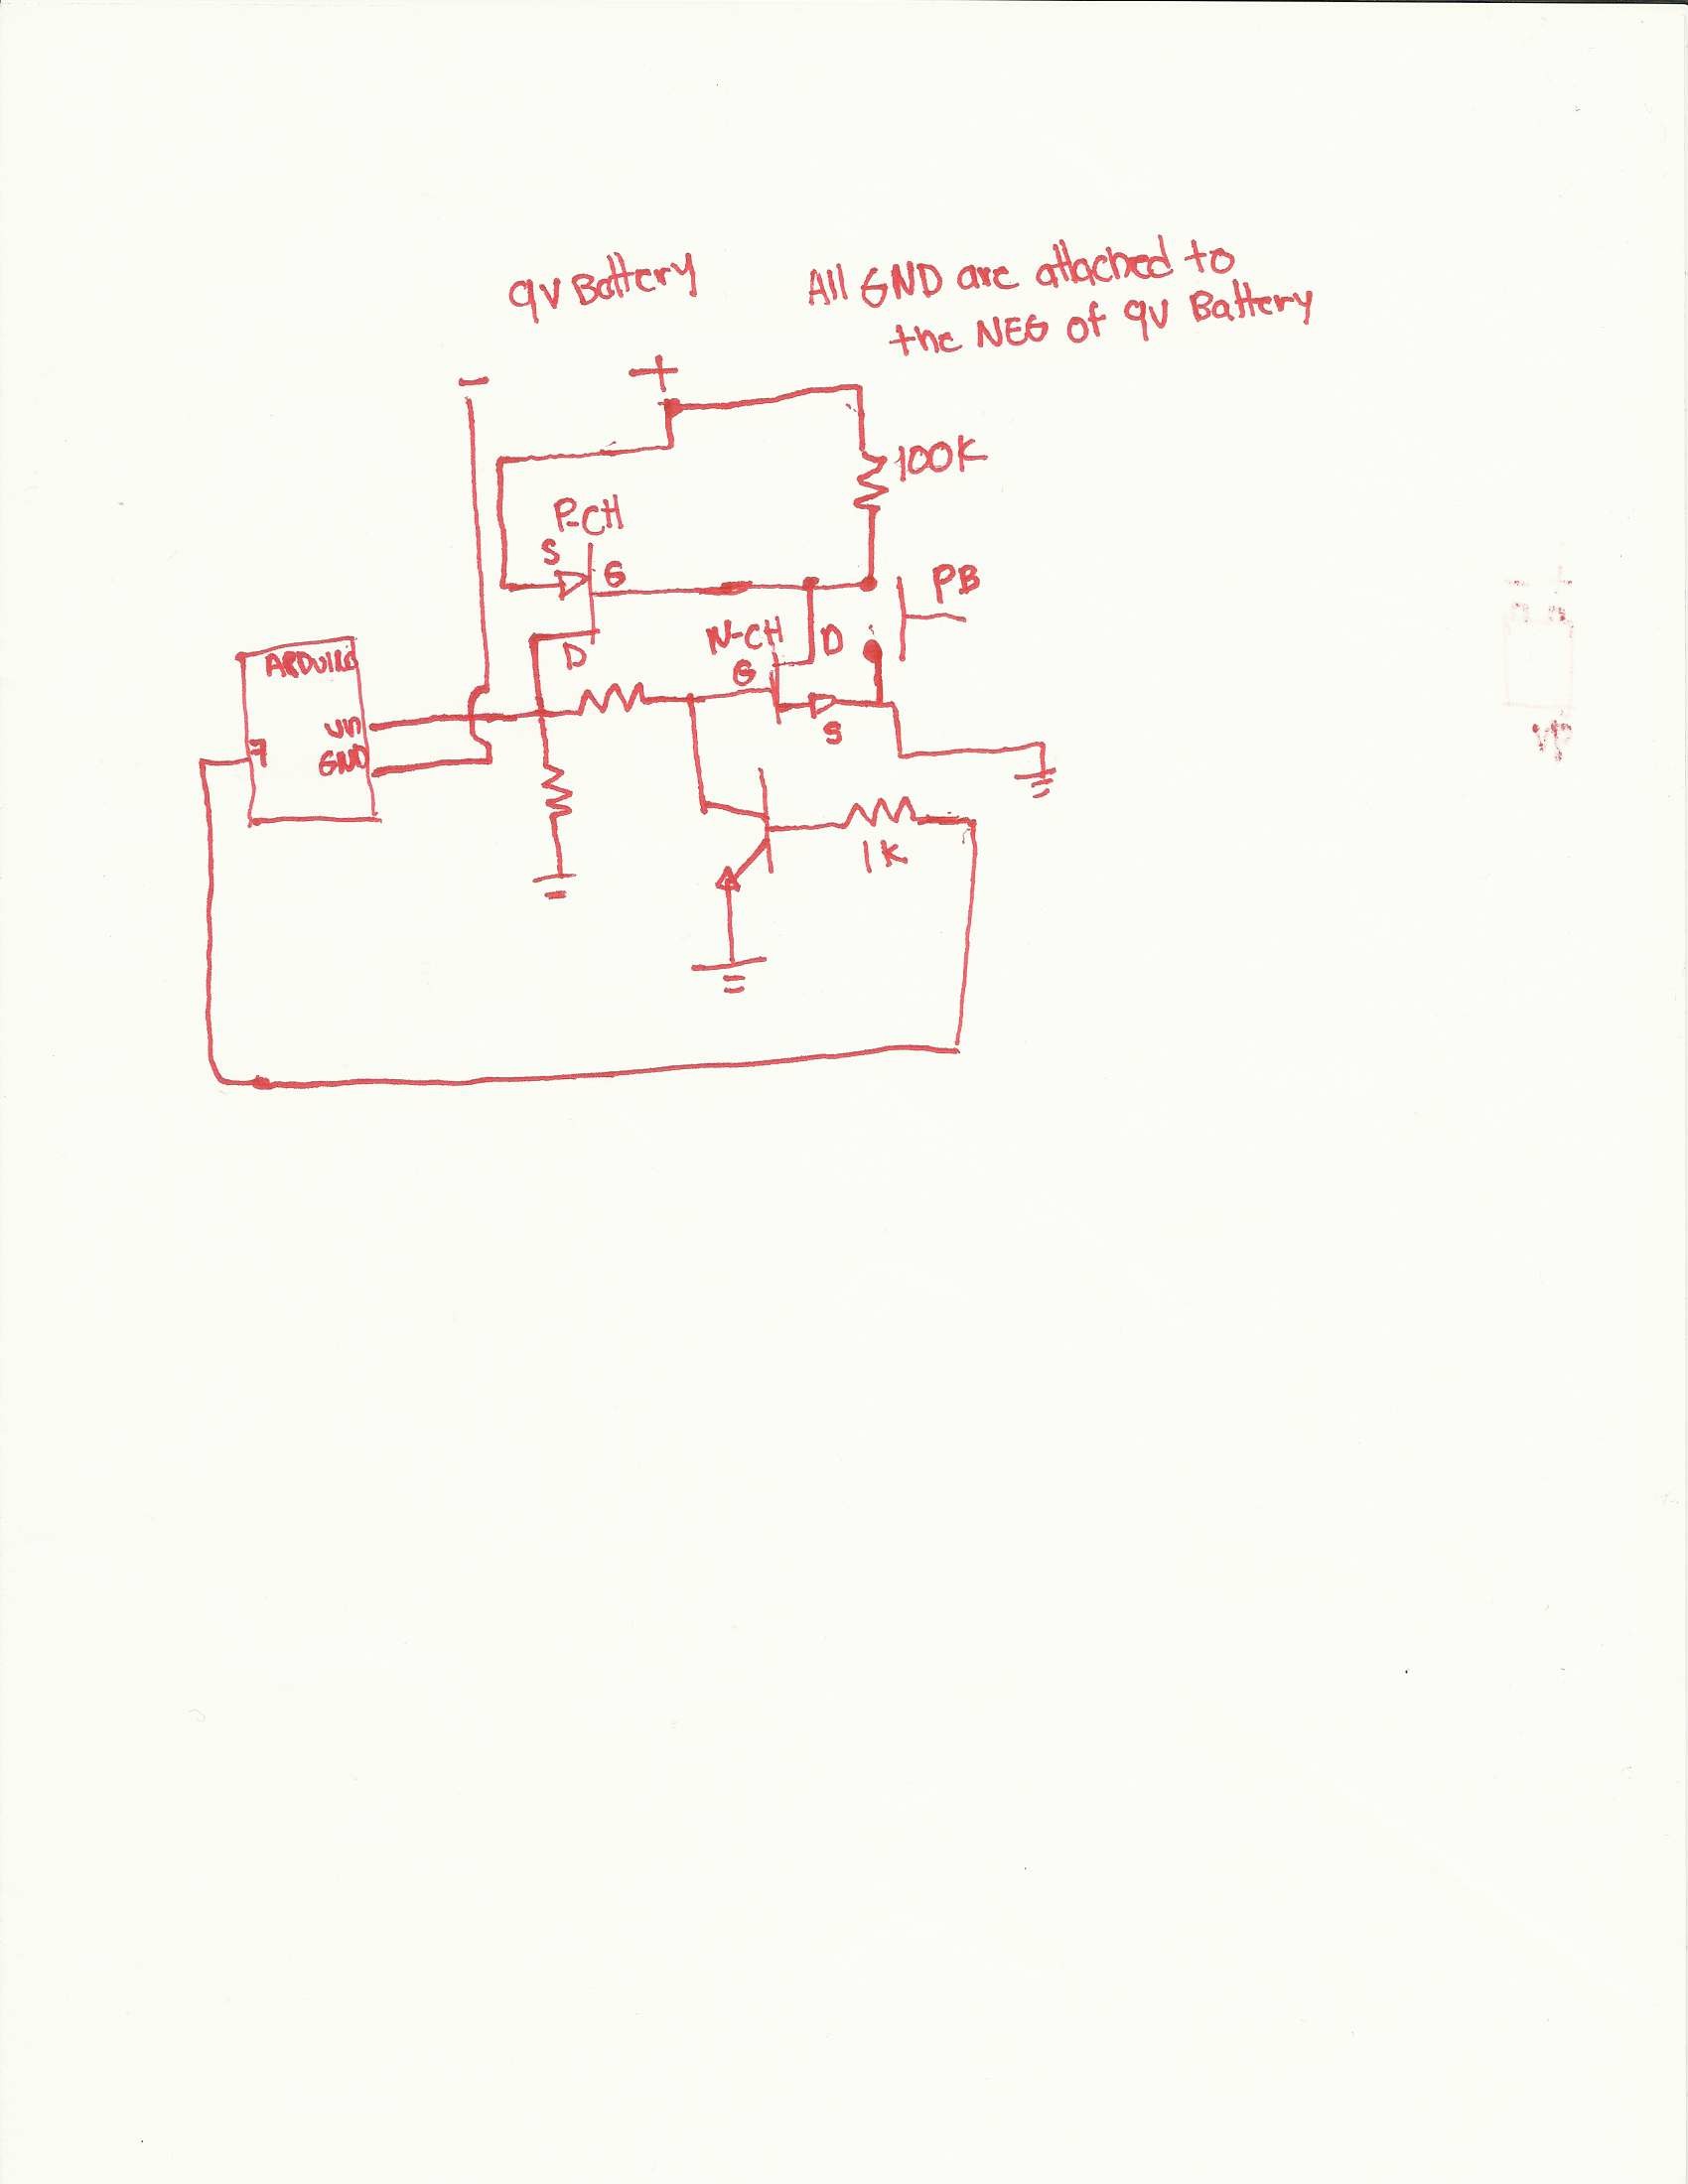 9V Battery
All GND are attached to
the NEG of 9V Battery
-
+
100K
P-CH
S
G
PB
N-CH
D
G
D
ARDUINO
Vin
S
7
GND
1K